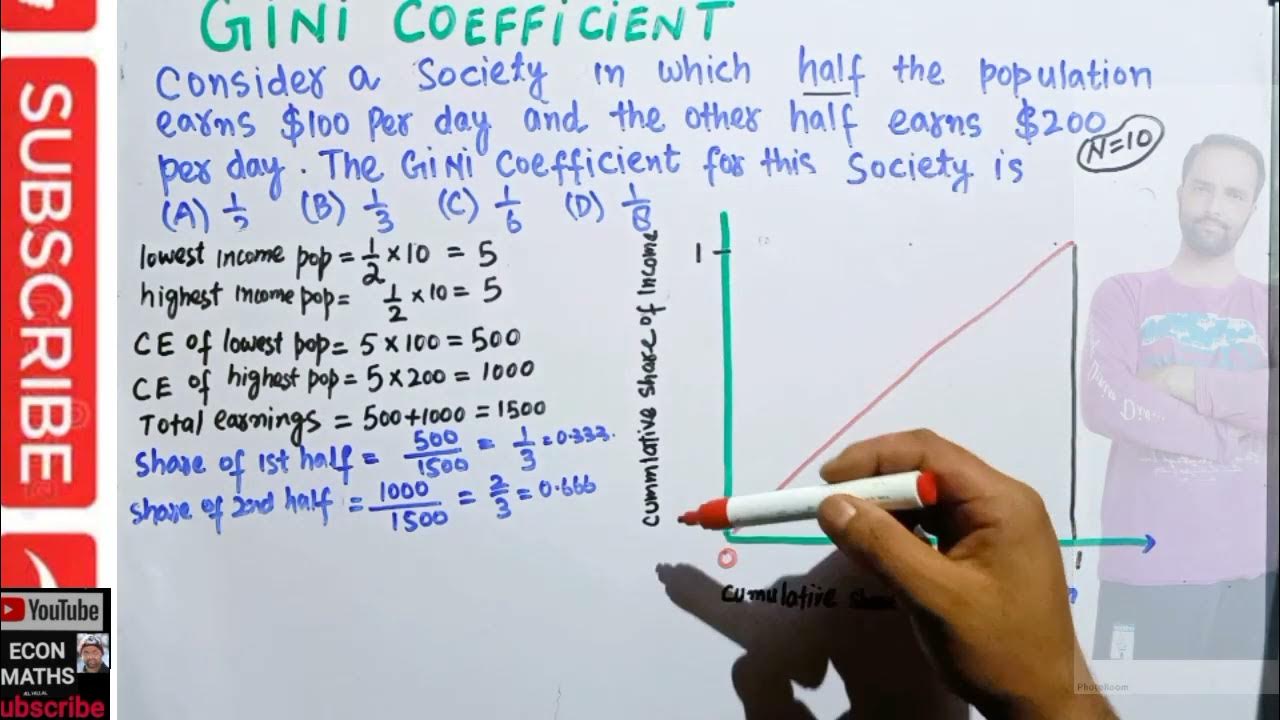 GINI COEFFICIENT
Consider a Society in which half the population
earns $100 Per day and the other half earns $200
per day. The GiNi Coefficient for this Society is
N=10
(A) 1/2 (B) 1/3 (C) 1/6 (D) 1/8
lowest income pop = 1/2 × 10 = 5
highest income pop = 1/2 × 10 = 5
CE of lowest pop = 5 × 100 = 500
CE of highest pop = 5 × 200 = 1000
Total earnings = 500+1000 = 1500
Share of 1st half = 500/1500 = 1/3 = 0.333.
Share of 2nd half = 1000/1500 = 2/3 = 0.666
cummlative share of Income
1
0
1
cumulative
SUBSCRIBE
YouTube
ECON
MATHS
ubscribe
PhotoRoom